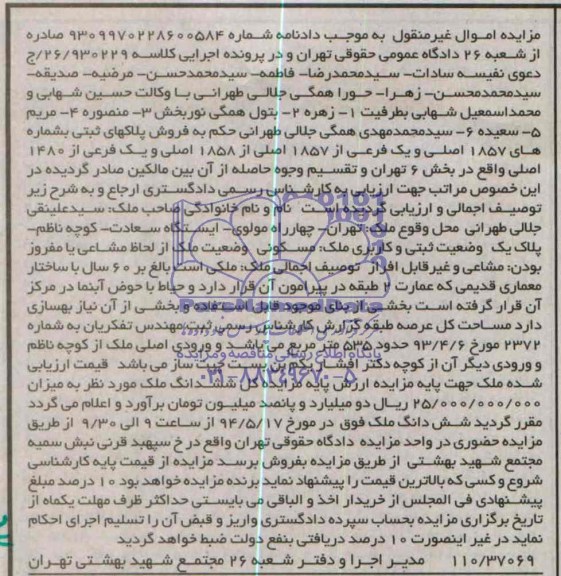 مزایده اموال غیرمنقول به موجب دادنامه شماره ۹۳۰۹۹۷۰۲۲۸۶۰۰۵۸۴ صادره
از شعبه ۲۶ دادگاه عمومی حقوقی تهران و در پرونده اجرایی کلاسه ۲۶/۹۳۰۲۲۹/ج
دعوی نفیسه سادات- سیدمحمدرضا- فاطمه- سیدمحمدحسن- مرضیه- صدیقه-
سیدمحمدمحسن- زهرا- حورا همگی جلالی طهرانی با وکالت حسین شهابی و
محمداسمعیل شهابی بطرفیت ۱- زهره ۲- بتول همگی نوربخش ۳- منصوره ۴- مریم
۵- سعیده ۶- سیدمحمدمهدی همگی جلالی طهرانی حکم به فروش پلاکهای ثبتی بشماره
های ۱۸۵۷ اصلی و یک فرعی از ۱۸۵۷ اصلی از ۱۸۵۸ اصلی و یک فرعی از ۱۴۸۰
اصلی واقع در بخش ۶ تهران و تقسیم وجوه حاصله از آن بین مالکین صادر گردیده در
این خصوص مراتب جهت ارزیابی به کارشناس رسمی دادگستری ارجاع و به شرح زیر
توصیف اجمالی و ارزیابی گردیده است نام و نام خانوادگی صاحب ملک: سیدعلینقی
جلالی طهرانی محل وقوع ملک: تهران- چهارراه مولوی- ایستگاه سعادت- کوچه ناظم-
پلاک یک وضعیت ثبتی و کاربری ملک: مسکونی وضعیت ملک از لحاظ مشاعی یا مفروز
بودن: مشاعی و غیرقابل افراز توصیف اجمالی ملک: ملکی است بالغ بر ۶۰ سال با ساختار
معماری قدیمی که عمارت ۲ طبقه در پیرامون آن قرار دارد و حیاط با حوض آبنما در مرکز
آن قرار گرفته است بخشی از بنای موجود قابل استفاده و بخشی از آن نیاز بهسازی
دارد مساحت کل عرصه طبق گزارش کارشناس رسمی ثبت مهندس تفکریان به شماره
۲۳۷۲ مورخ ۹۳/۴/۶ حدود ۵۳۵ متر مربع می باشد و ورودی اصلی ملک از کوچه ناظم
و ورودی دیگر آن از کوچه دکتر افشار یکم بن بست چیت ساز می باشد قیمت ارزیابی
شده ملک جهت پایه مزایده ارزش پایه مزایده کل ششدانگ ملک مورد نظر به میزان
۲۵/۰۰۰/۰۰۰/۰۰۰ ریال دو میلیارد و پانصد میلیون تومان برآورد و اعلام می گردد
مقرر گردید شش دانگ ملک فوق در مورخ ۹۴/۵/۱۷ از ساعت ۹ الی ۹/۳۰ از طریق
مزایده حضوری در واحد مزایده دادگاه حقوقی تهران واقع در خ سپهبد قرنی نبش سمیه
مجتمع شهید بهشتی از طریق مزایده بفروش برسد مزایده از قیمت پایه کارشناسی
شروع و کسی که بالاترین قیمت را پیشنهاد نماید برنده مزایده خواهد بود ۱۰ درصد مبلغ
پیشنهادی فی المجلس از خریدار اخذ و الباقی می بایستی حداکثر ظرف مهلت یکماه از
تاریخ برگزاری مزایده بحساب سپرده دادگستری واریز و قبض آن را تسلیم اجرای احکام
نماید در غیر اینصورت ۱۰ درصد دریافتی بنفع دولت ضبط خواهد گردید
۱۱۰/۳۷۰۶۹ مدیر اجرا و دفتر شعبه ۲۶ مجتمع شهید بهشتی تهران
پایگاه اطلاع رسانی مناقصه و مزایده
۰۲۱-۸۸۳۴۹۶۷۰-۵